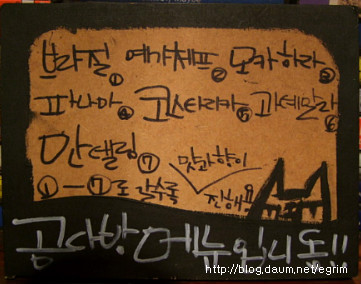 브라질① 예가체프② 모카하라③
파나마④ 코스타리카⑤ 과테말라⑥
만델링⑦ 맛과향이
①-⑦로 갈수록 진해요
공다방 메뉴입니돠!!
http://blog.daum.net/egrim